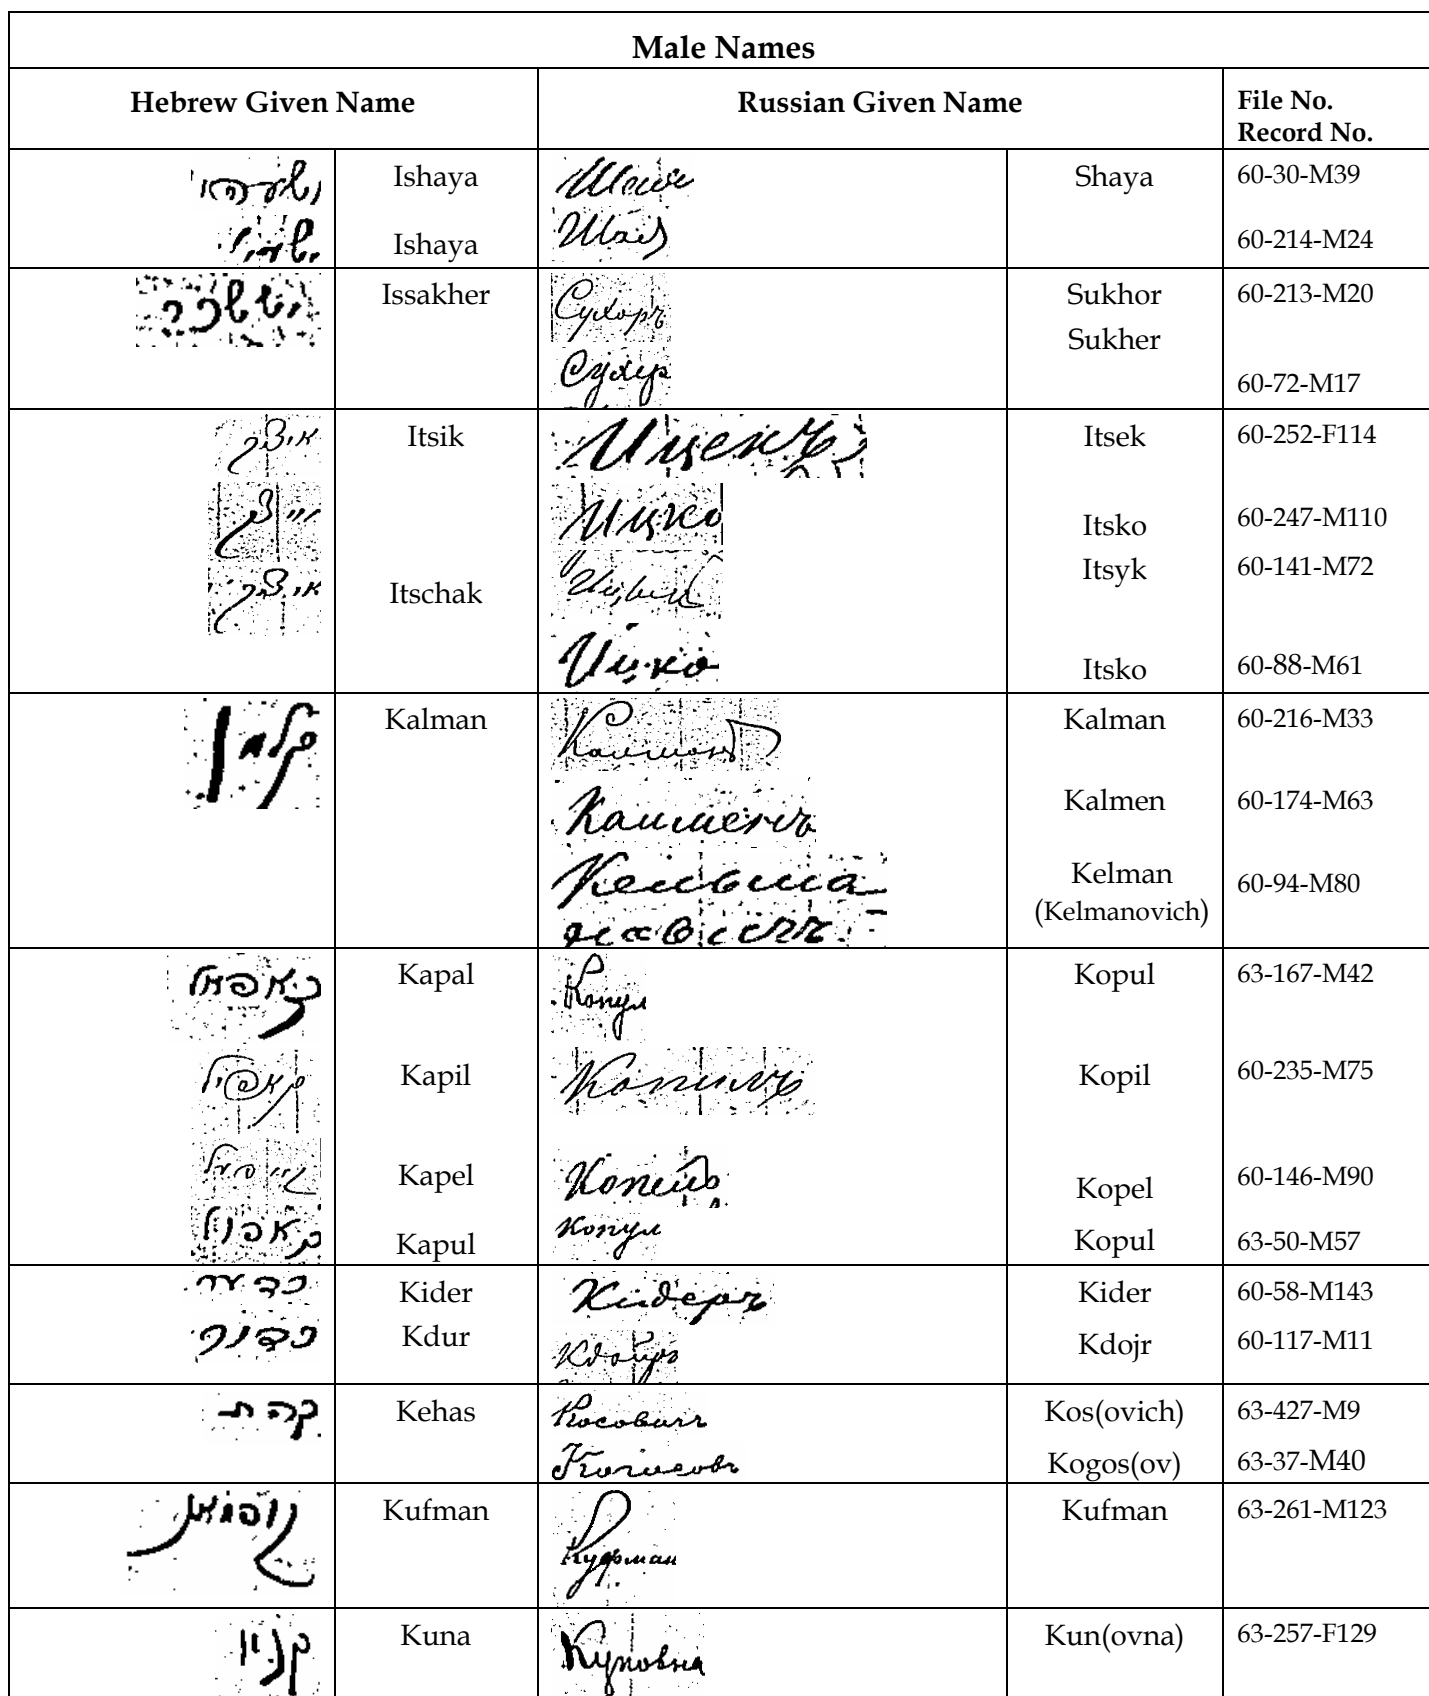 Male Names
Hebrew Given Name Russian Given Name File No.
Record No.
Ishaya Шая Shaya 60-30-M39
Ishaya Шая 60-214-M24
יששכר Issakher Сухоръ Sukhor 60-213-M20
Sukher
Сухер 60-72-M17
איציק Itsik Ицекъ Itsek 60-252-F114
Ицко Itsko 60-247-M110
איציק Itschak Ицык Itsyk 60-141-M72
Ицко Itsko 60-88-M61
קלמן Kalman Калманъ Kalman 60-216-M33
Калменъ Kalmen 60-174-M63
Кельма Kelman 60-94-M80
новичъ (Kelmanovich)
קאפאל Kapal Копул Kopul 63-167-M42
קאפיל Kapil Копиль Kopil 60-235-M75
Kapel Копель Kopel 60-146-M90
קאפול Kapul Копул Kopul 63-50-M57
כדער Kider Кидеръ Kider 60-58-M143
כדור Kdur Кдойръ Kdojr 60-117-M11
קהת Kehas Косович Kos(ovich) 63-427-M9
Kogos(ov) 63-37-M40
קופמאן Kufman Куфман Kufman 63-261-M123
Kuna Куновна Kun(ovna) 63-257-F129